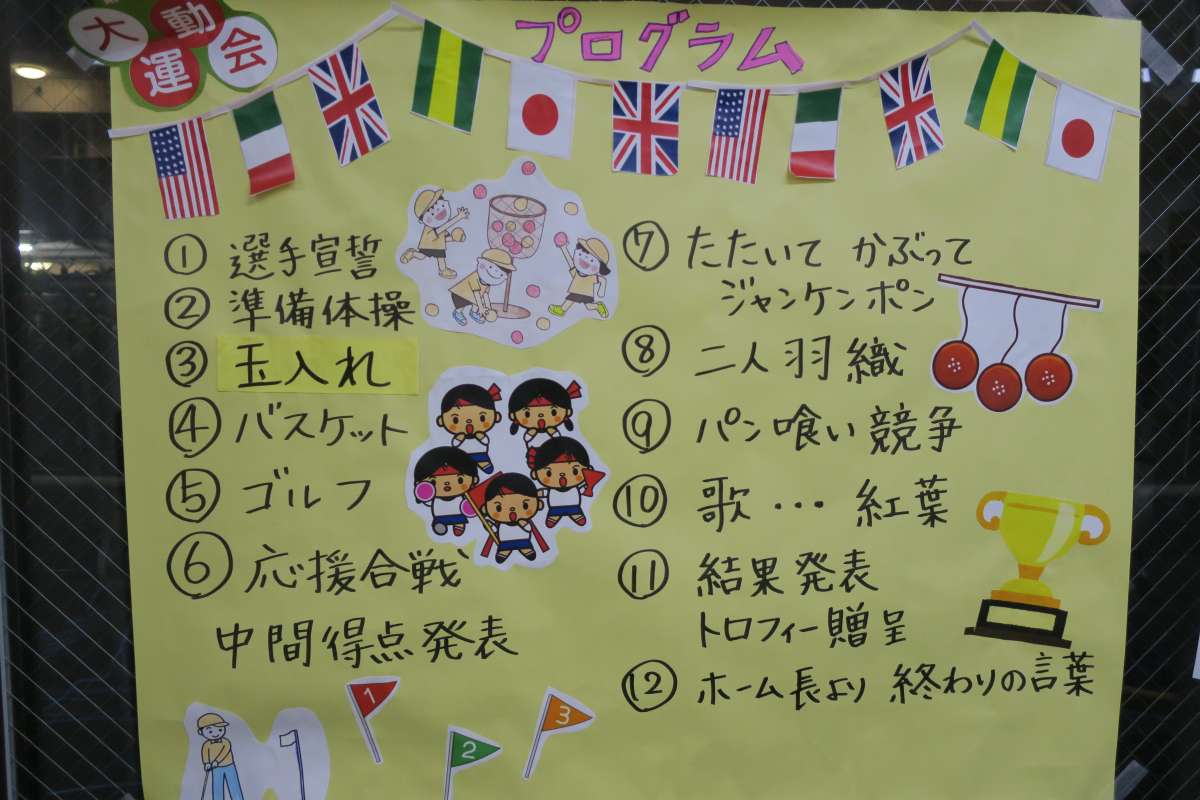 大運動会
プログラム
① 選手宣誓
② 準備体操
③ 玉入れ
④ バスケット
⑤ ゴルフ
⑥ 応援合戦
中間得点発表
⑦ たたいて かぶって
ジャンケンポン
⑧ 二人羽織
⑨ パン喰い競争
⑩ 歌・・・紅葉
⑪ 結果発表
トロフィー贈呈
⑫ ホーム長より 終わりの言葉
1
2
3